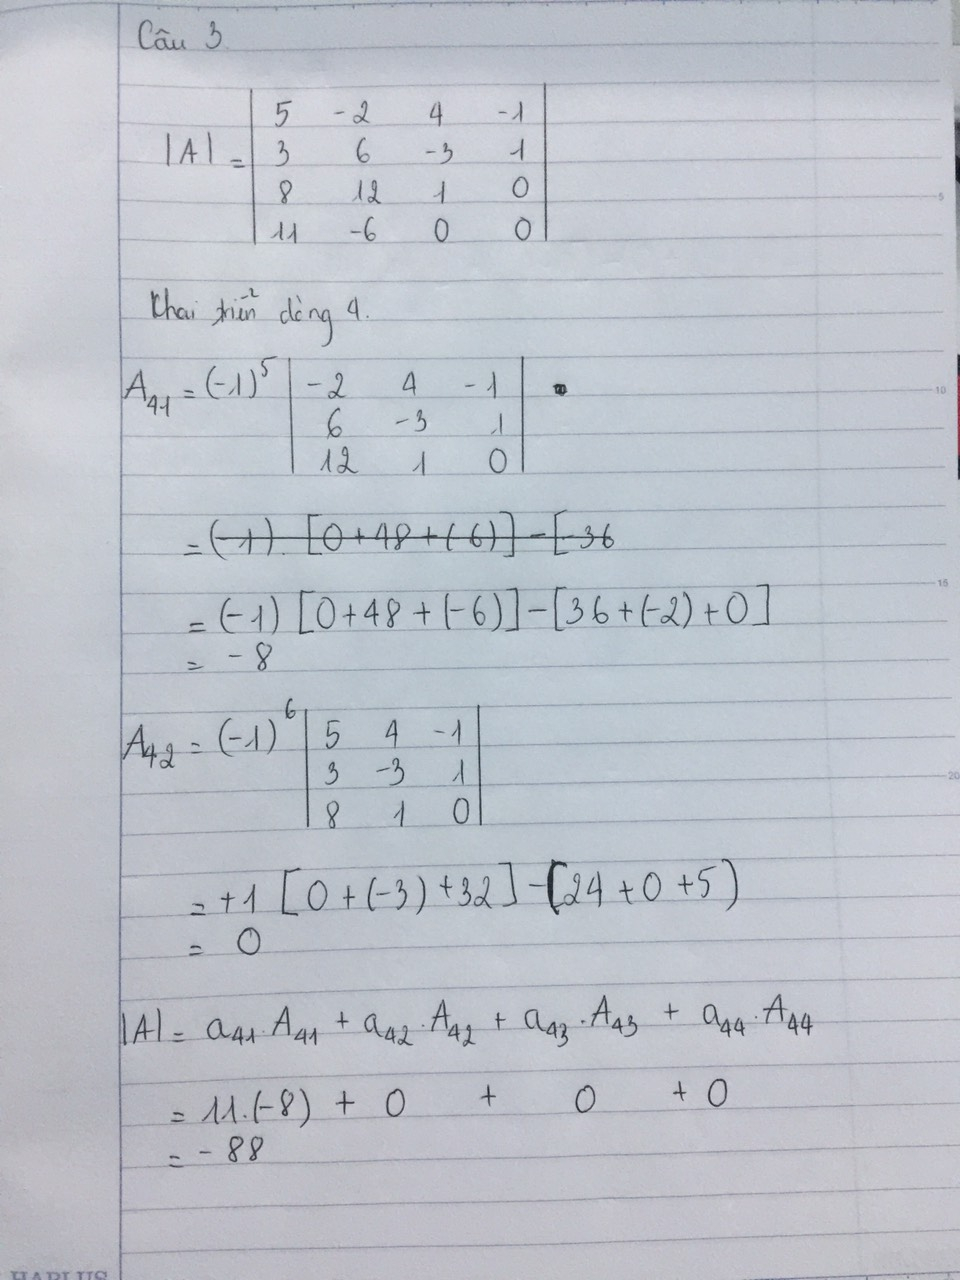 Câu 3
|A| = | 5 -2 4 -1 |
| 3 6 -3 1 |
| 8 12 1 0 |
| 11 -6 0 0 |
Khai triển dòng 4.
A₄₁ = (-1)⁵ | -2 4 -1 |
| 6 -3 1 |
| 12 1 0 |
= (-1) [0+48+(-6)] - [-36
= (-1) [0+48+(-6)] - [36+(-2)+0]
= -8
A₄₂ = (-1)⁶ | 5 4 -1 |
| 3 -3 1 |
| 8 1 0 |
= +1 [0+(-3)+32] - (24+0+5)
= 0
|A| = a₄₁.A₄₁ + a₄₂.A₄₂ + a₄₃.A₄₃ + a₄₄.A₄₄
= 11.(-8) + 0 + 0 + 0
= -88
5
10
15
20